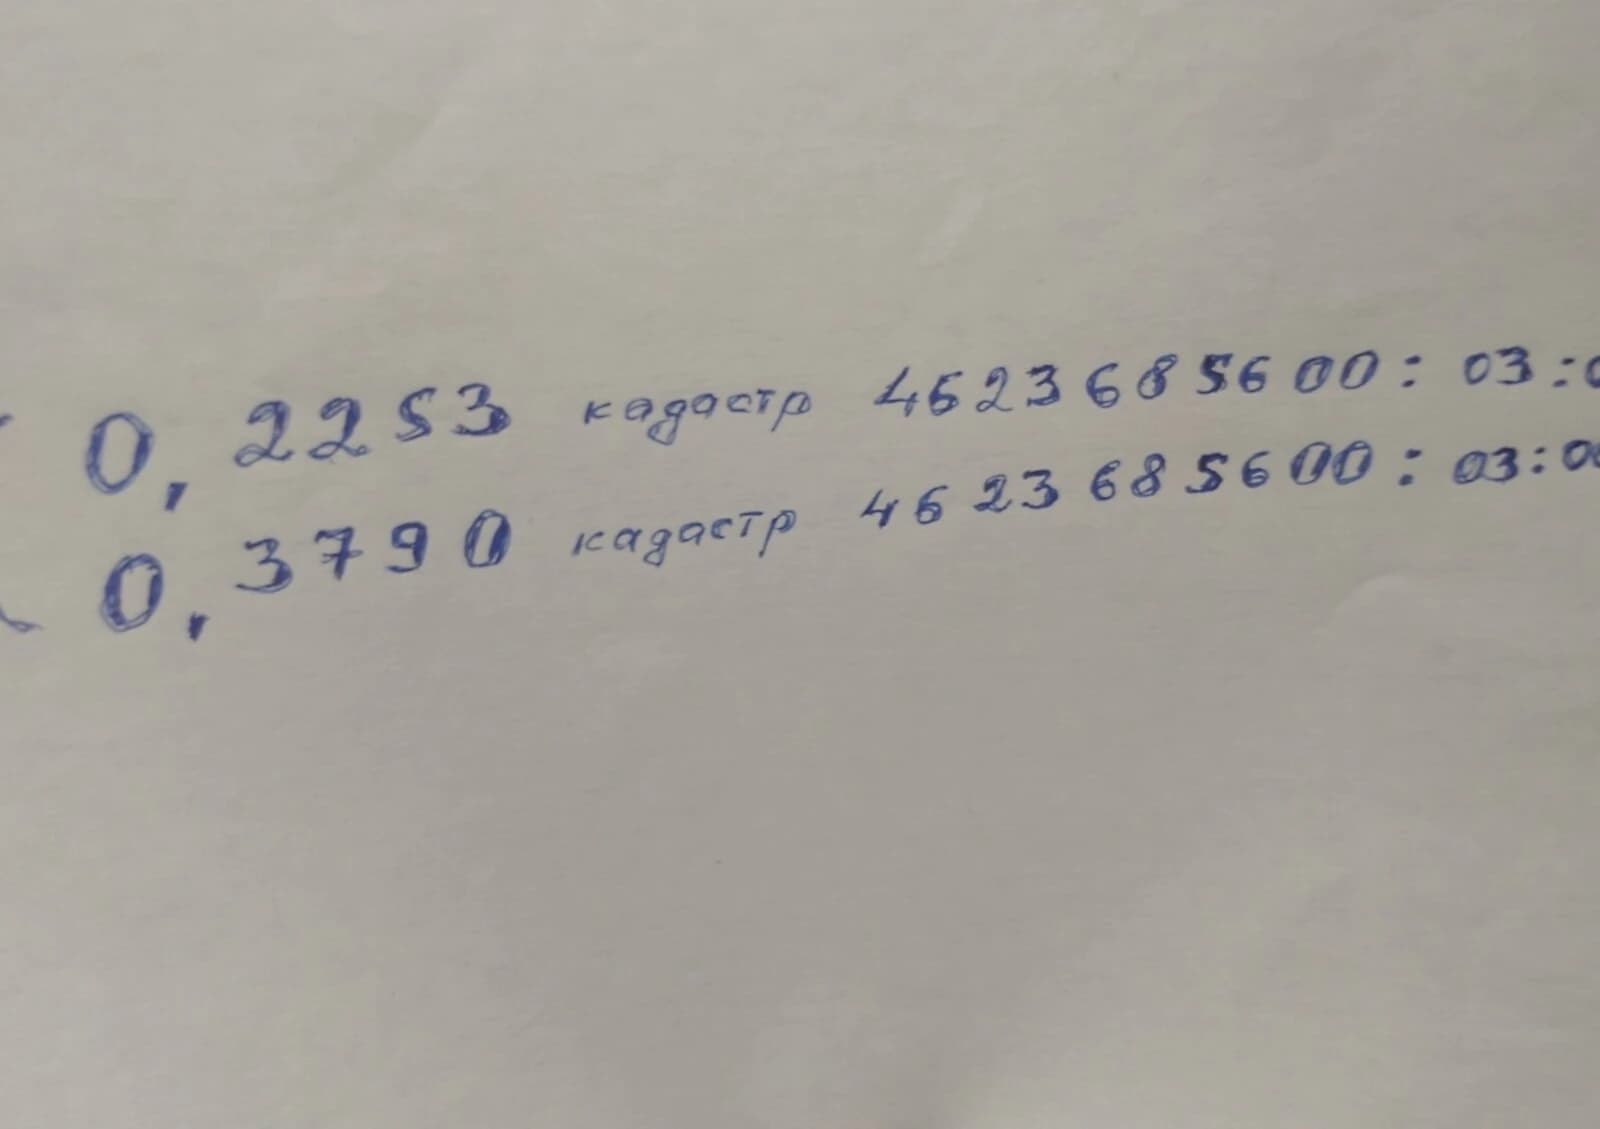 0,2253 кадастр 4623685600: 03:0
0,3790 кадастр 4623685600: 03:00